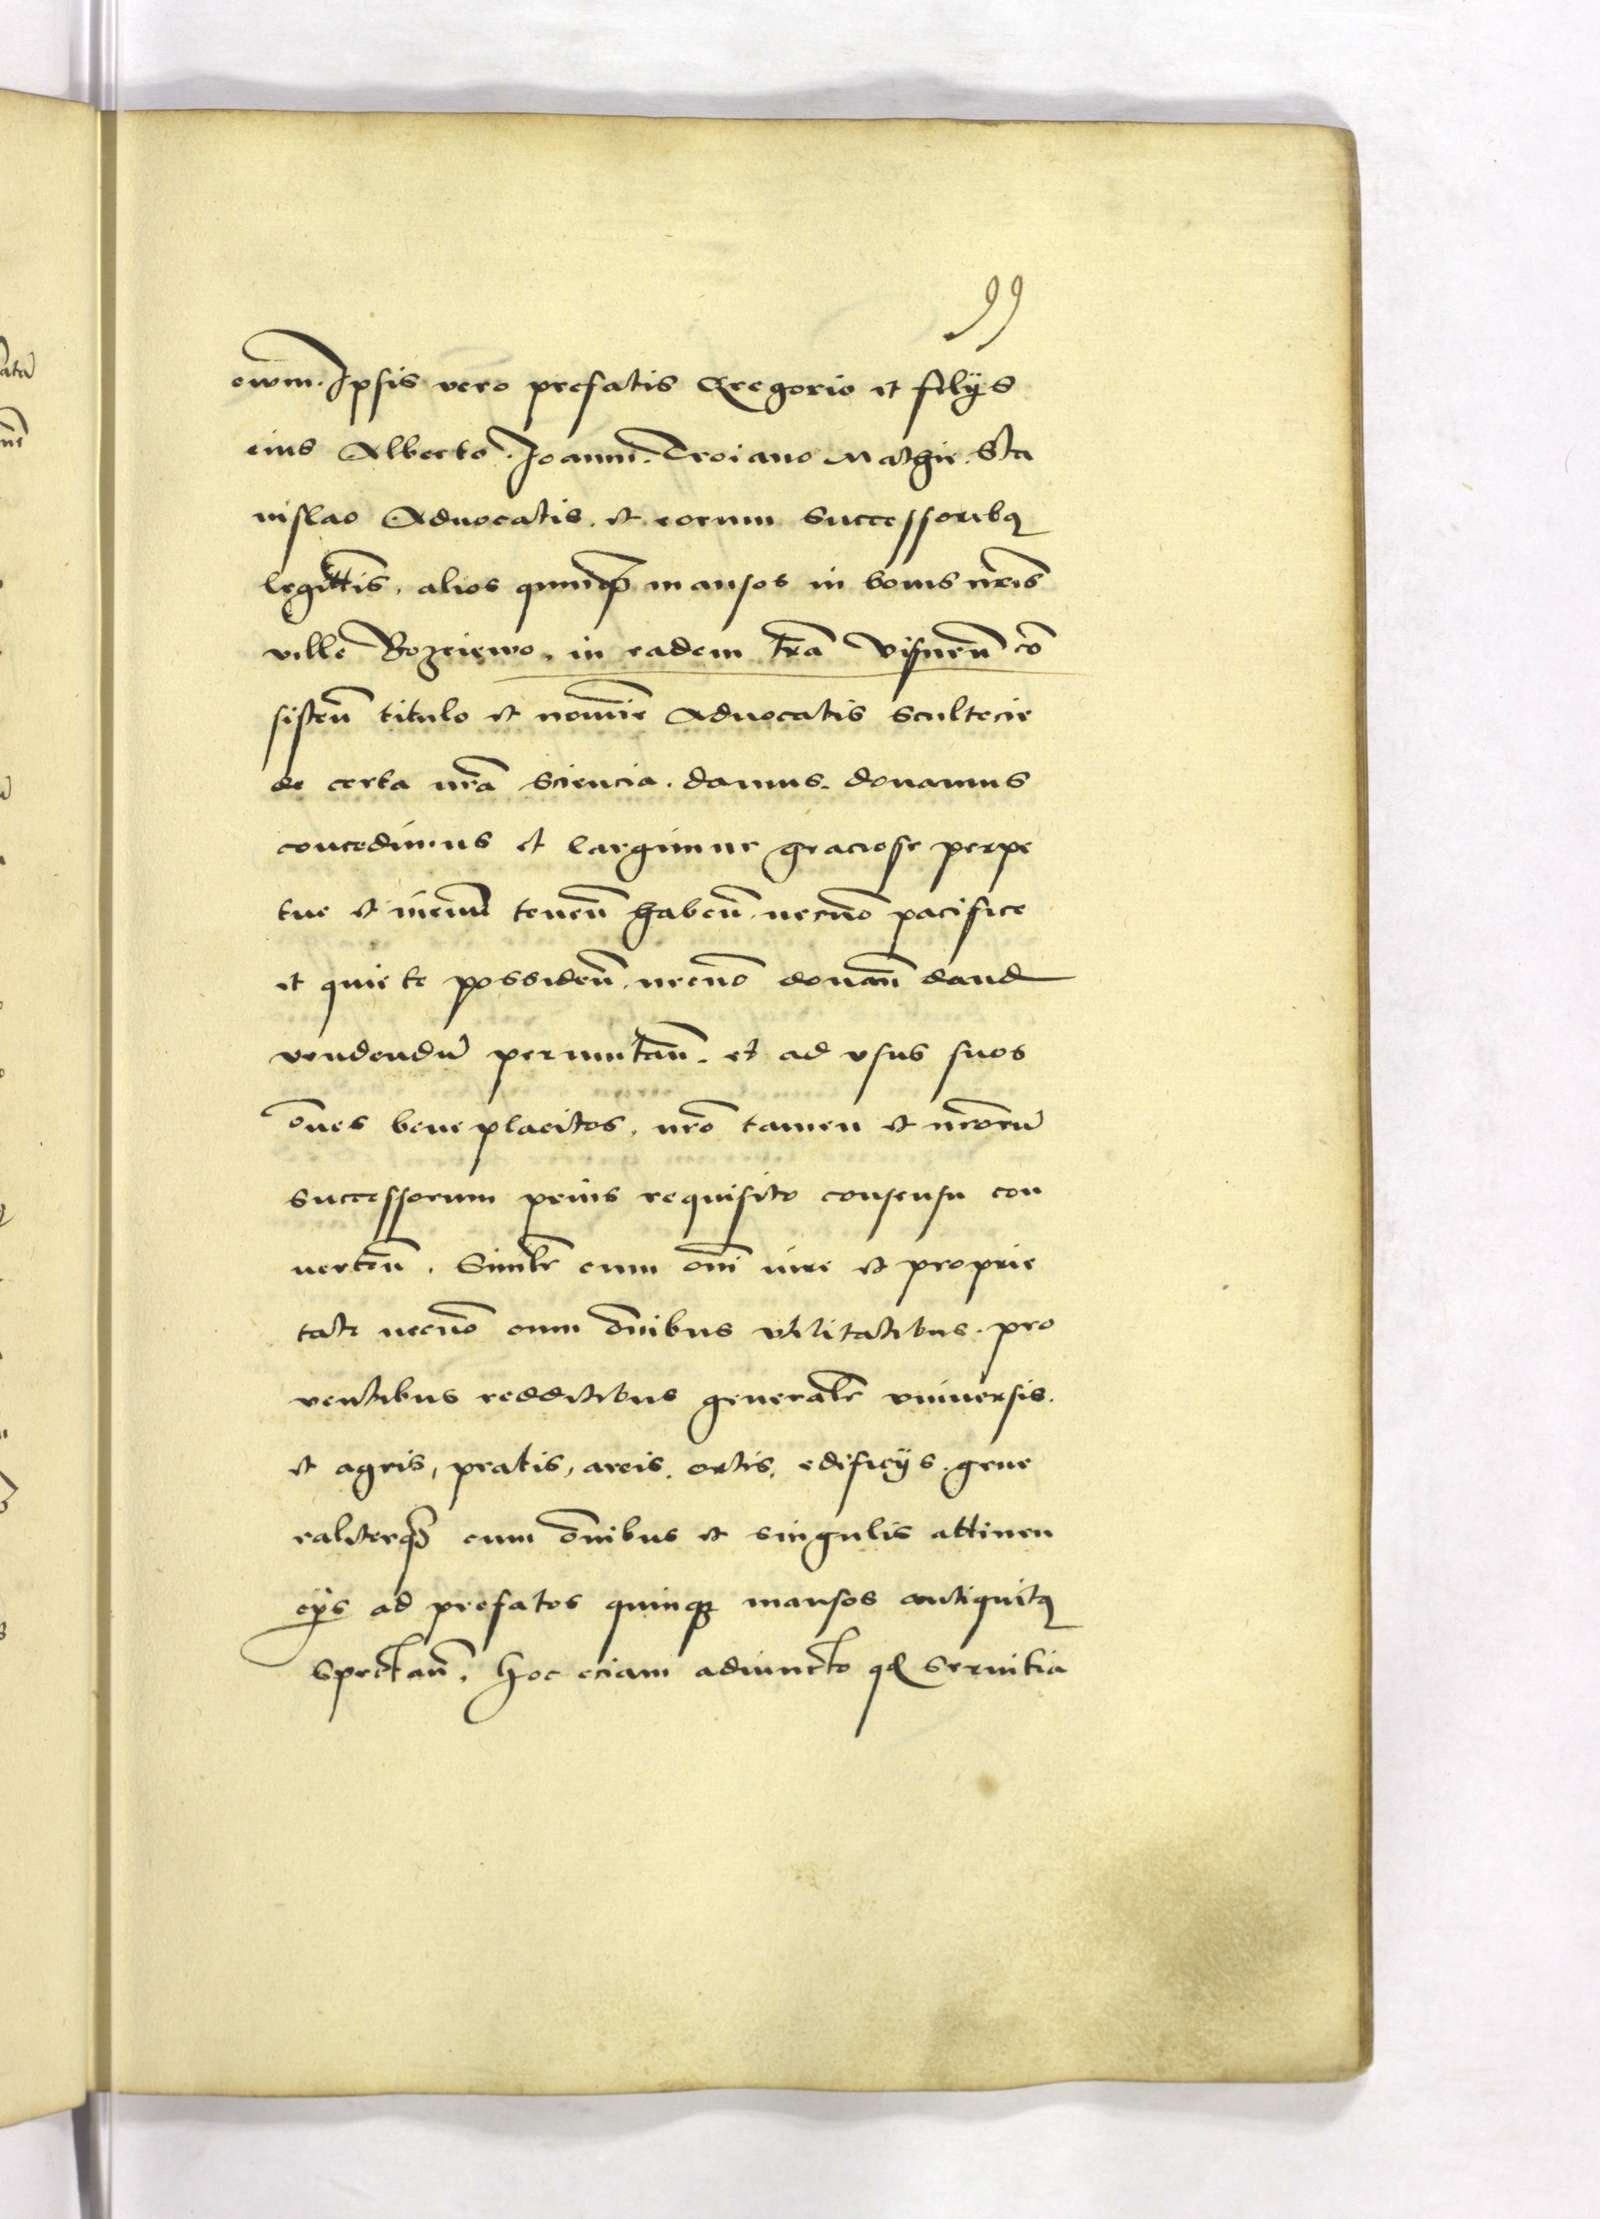 99
owm. Ipsis vero prefatis Gregorio et filÿs
eius Alberto. Joanni. Troiano Mathie. Sta
nislao Aduocatis. et eorum Successoribꝯ
legitt̃is. alios quinqꝫ mansos in bonis nr̃is
ville Bozeiewo, in eadem tr̃a Visneñ cõ
sisteñ titulo et nomĩe Aduocatis Scultecie
de certa nr̃a Sciencia. damus. donamus
concedimus et largimur graciose perpe
tue et ineuũ teneñ habeñ. necnõ pacifice
et quiete possideñ. necnõ donañ dand
vendendũ permutañ. et ad vsus suos
õnes beneplacitos. nr̃o tamen et nr̃orũ
Successorum prius requisito consensu con
uerteñ. Simil̃r cum om̃i iure et proprie
tate necnõ cum õnibus vtilitatibus. pro
ventibus redditibus general̃r vniuersis.
et agris, pratis, areis. ortis. edificÿs. gene
raliterqꝫ cum õnibus et singulis attinen
cÿs ad prefatos quinqꝫ mansos antiquitꝯ
Spectañ. Hoc eciam adiuncto qꝺ Seruitia